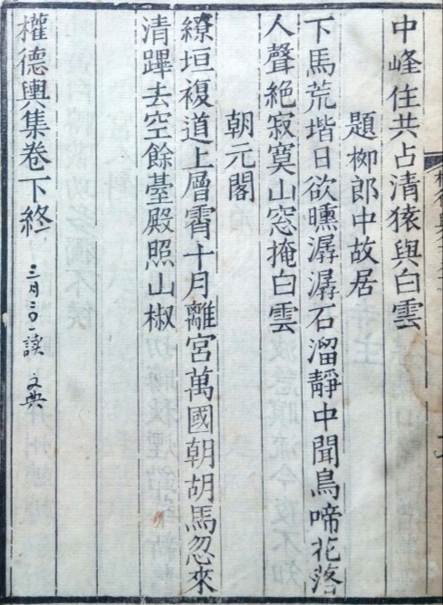 中峰住共占清猿與白雲
題柳郎中故居
下馬荒堦日欲曛潺潺石溜靜中聞鳥啼花落
人聲絕寂寞山窓掩白雲
朝元閣
繚垣複道上層霄十月離宮萬國朝胡馬忽來
清蹕去空餘臺殿照山椒
權德輿集卷下終
三月三日一讀 文典